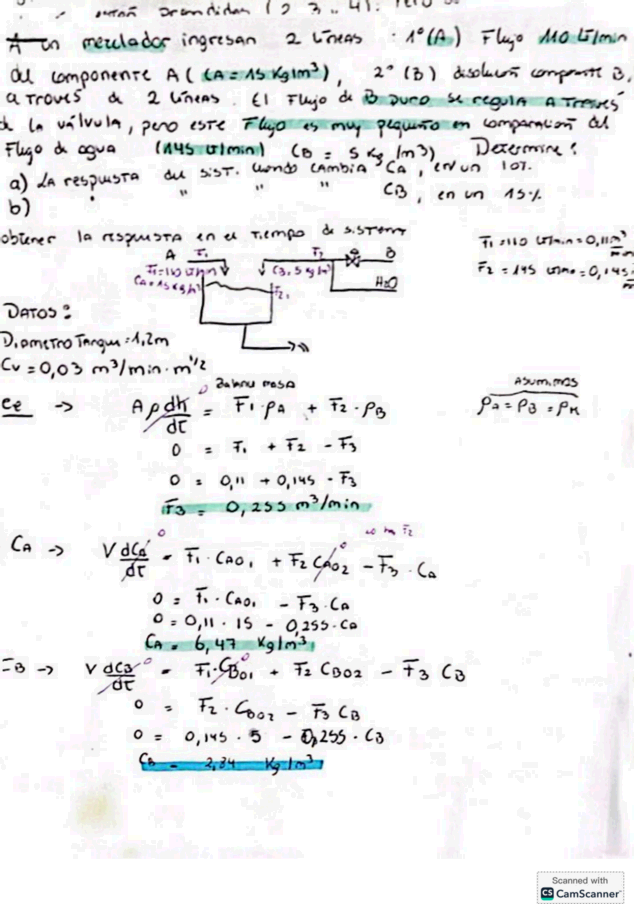 A un mezclador ingresan 2 líneas : 1º (A) Flujo 110 lt/min
del componente A (CA = 15 Kg/m³), 2º (B) disolución componente B,
a través de 2 líneas. El Flujo de B puro se regula a través
de la válvula, pero este Flujo es muy pequeño en comparación del
Flujo de agua (145 lt/min) CB = 5 Kg/m³) Determine :
a) La respuesta del sist. cuando cambia CA, en un 10%.
b) " " " " CB, en un 15%
obtener la respuesta en el tiempo de sistema
F1 = 110 lt/min = 0,11 m³/
F2 = 145 = 0,145
A F1 F2 B
F1 = 110 lt/min
CA = 15 Kg/m³
CB, 5 Kg/m³
H2O
DATOS :
Diametro Tanque = 1,2m
Cv = 0,03 m³/min·m^1/2
Balance masa
ee -> Aρ dh/dt = F1·ρA + F2·ρB
0
Asumimos
ρA = ρB = ρM
0 = F1 + F2 - F3
0 = 0,11 + 0,145 - F3
F3 = 0,255 m³/min
CA -> V dCA/dt = F1·CA01 + F2 CA02 - F3·CA
0 0 no hay F2
0 = F1·CA01 - F3·CA
0 = 0,11·15 - 0,255·CA
CA = 6,47 Kg/m³
-> V dCB/dt = F1·CB01 + F2 CB02 - F3 CB
0 0
0 = F2·CB02 - F3 CB
0 = 0,145·5 - 0,255·CB
CB = 2,84 Kg/m³
Scanned with
CS CamScanner